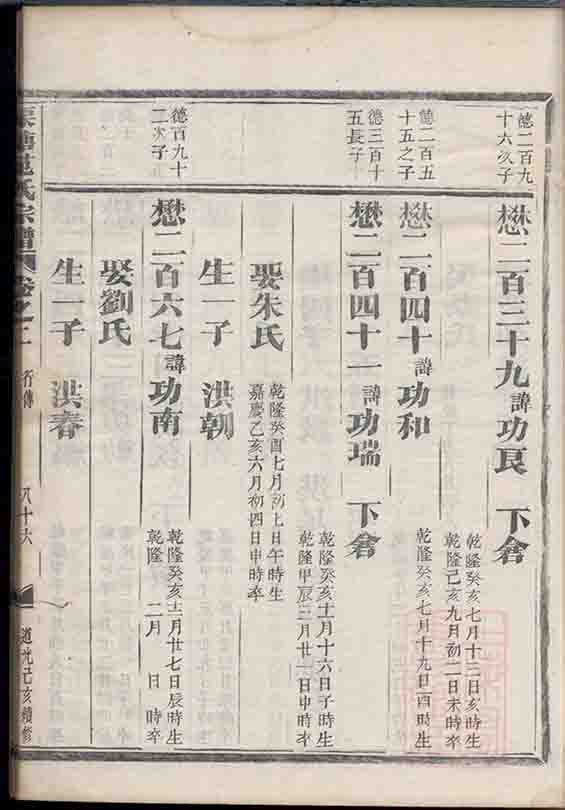 德二百九
十六次子
懋二百三十九諱功良 下倉
乾隆癸亥七月十三日亥時生
乾隆己亥九月初二日未時卒
德二百五
十五之子
懋二百四十諱功和
乾隆癸亥七月十九日酉時生
德三百十
五長子
懋二百四十一諱功瑞 下倉
乾隆癸亥十月十六日子時生
乾隆甲辰三月廿一日申時卒
娶朱氏
乾隆癸酉七月初七日午時生
嘉慶乙亥六月初四日申時卒
生一子 洪朝
德百九十
二次子
懋二百六七諱功南
乾隆癸亥十二月廿七日辰時生
乾隆 二月 日 時卒
娶劉氏
生一子 洪春
范氏宗譜 卷之二
八十六
道光己亥續修